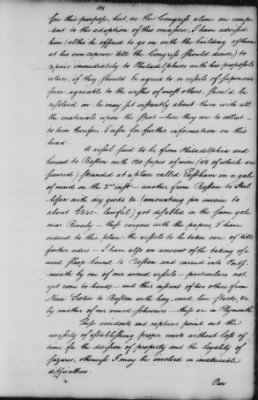 for this purpose, but as the Congress alone are compe-
tent to the adoption of this measure, I have advised
him (altho' he offered to go on with the building of them
at his own expence till the Congress should decide) to
repair immediately to Philadelphia with his proposals
where, if they should be agreed to or vessels of superior
force agreeable to the wishes of most others, should be
resolved on he may set instantly about them with all
the materials upon the spot — here they are to collect —
to him therefore I refer for further information on this
head.
A vessel said to be from Philadelphia and
bound to Boston with 120 pipes of wine (118 of which are
secured) stranded at a place called Eastham in a gale
of wind on the 2nd inst — another from Boston to Hal-
ifax with dry goods &c (amounting per invoice to
about £240. lawful) got disabled in the same gale
near Beverly — these cargoes with the papers, I have
ordered to this place — the vessels to be taken care of till
further orders — I have also an account of the taking of a
wood sloop bound to Boston and carried into Ports-
mouth by one of our armed vessels — particulars not
yet come to hand — and this instant of two others from
Nova Scotia to Boston with hay, wood, live stock, &c
by another of our armed schooners — these are in Plymouth
These accidents and captures point out the
necessity of establishing proper courts without loss of
time for the decision of property and the legality of
seizures, otherwise I may be involved in inextricable
difficulties.
Our